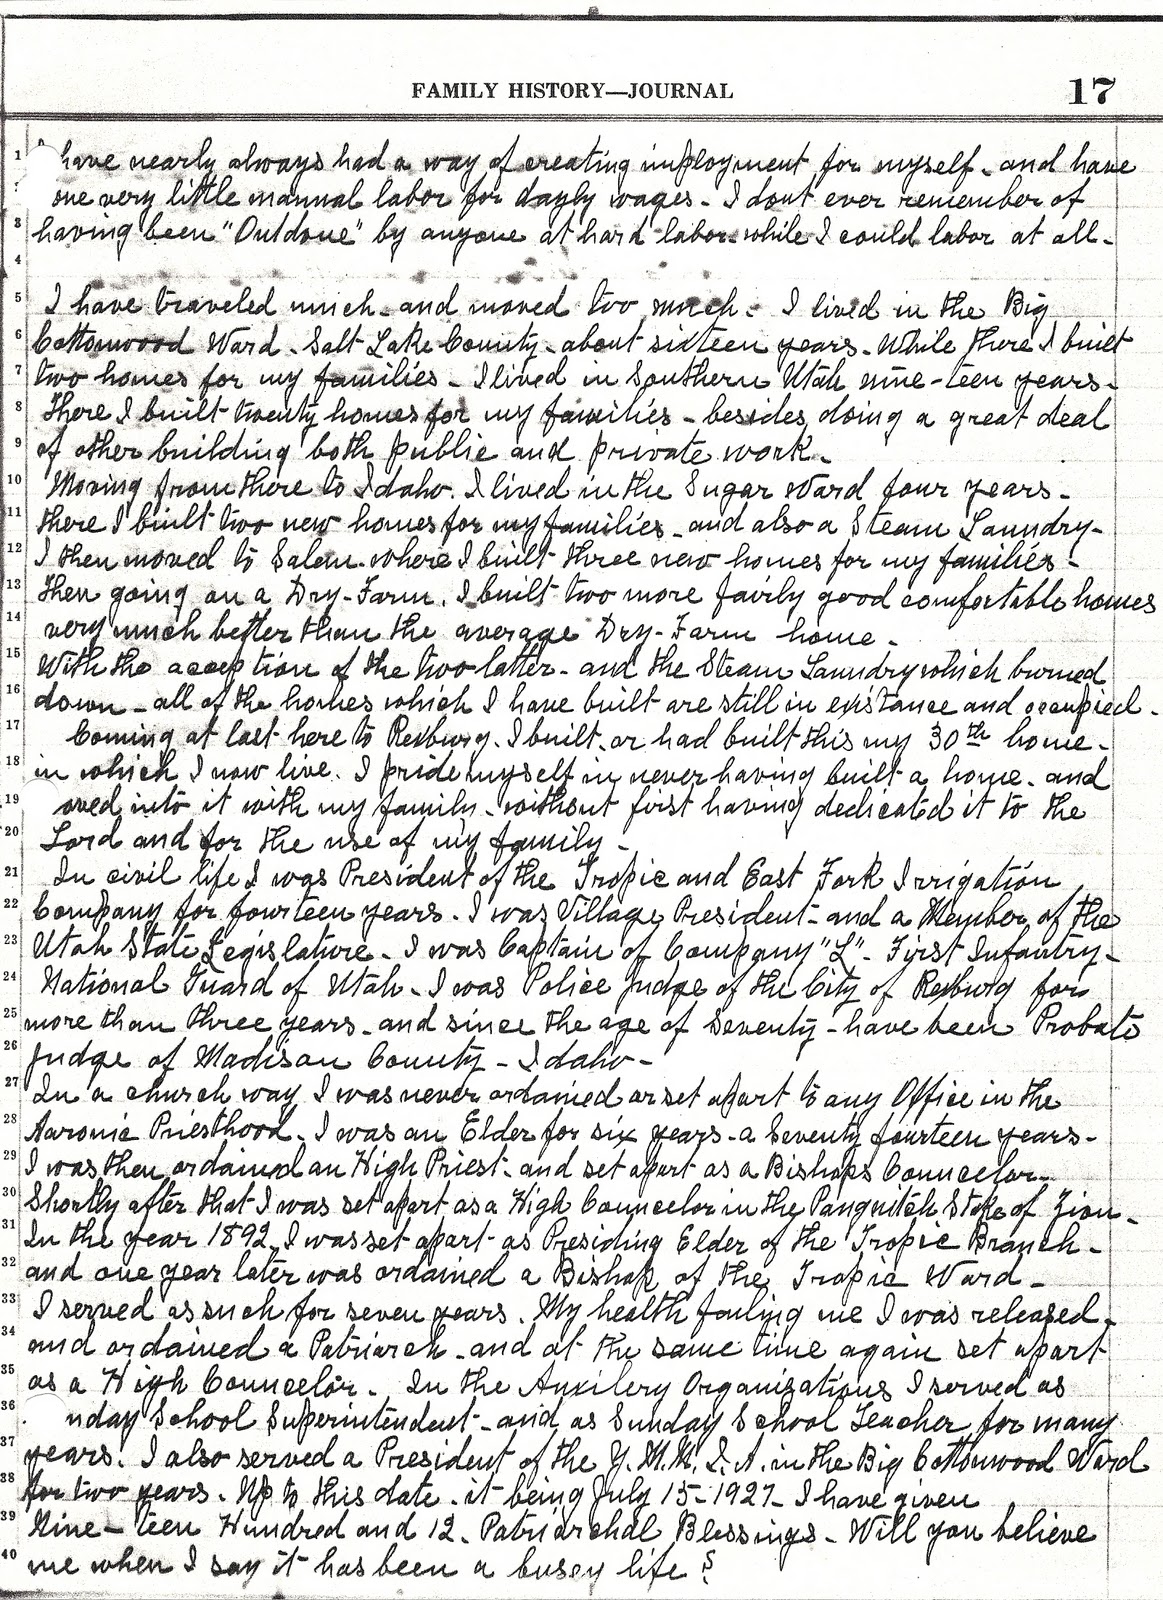 FAMILY HISTORY—JOURNAL 17
1 have nearly always had a way of creating imployment for myself - and have
one very little manual labor for dayly wages - I dont ever remember of
3 having been "Outdone" by anyone at hard labor while I could labor at all -
4
5 I have traveled much - and moved too much - I lived in the Big
6 Cottonwood Ward - Salt Lake County - about sixteen years - While there I built
7 two homes for my families - I lived in Southern Utah nine-teen years -
8 There I built twenty homes for my families - besides doing a great deal
9 of other building both public and private work -
10 Moving from there to Idaho. I lived in the Sugar Ward four years -
11 there I built two new homes for my families - and also a Steam Laundry -
12 I then moved to Salem - where I built three new homes for my families -
13 Then going on a Dry-Farm, I built two more fairly good comfortable homes
14 very much better than the average Dry-Farm home -
15 With the acception of the two latter - and the Steam Laundry which burned
16 down - all of the homes which I have built are still in existance and occupied -
17 Coming at last here to Rexburg - I built, or had built this my 30th home -
18 in which I now live. I pride myself in never having built a home - and
19 oved into it with my family - without first having dedicated it to the
20 Lord and for the use of my family -
21 In civil life I was President of the Tropic and East Fork Irrigation
22 Company for fourteen years - I was Village President - and a Member of the
23 Utah State Legislature - I was Captain of Company "L" - First Infantry -
24 National Guard of Utah - I was Police Judge of the City of Rexburg for
25 more than three years - and since the age of Seventy - have been Probate
26 Judge of Madison County - Idaho -
27 In a church way I was never ordained or set apart to any Office in the
28 Aaronic Priesthood - I was an Elder for six years - a Seventy fourteen years -
29 I was then ordained an High Priest - and set apart as a Bishops Councelor -
30 Shortly after that I was set apart as a High Councelor in the Panguitch Stake of Zion -
31 In the year 1892 I was set apart as Presiding Elder of the Tropic Branch -
32 and one year later was ordained a Bishop of the Tropic Ward -
33 I served as such for seven years. My health failing me I was released -
34 and ordained a Patriarch - and at the same time again set apart
35 as a High Councelor - In the Auxilery Organizations I served as
36 nday School Superintendent - and as Sunday School Teacher for many
37 years. I also served a President of the Y.M.M.I.A. in the Big Cottonwood Ward
38 for two years - Up to this date - it being July 15 - 1927 - I have given
39 Nine-teen Hundred and 12 - Patriarchal Blessings - Will you believe
40 me when I say it has been a busey life ?